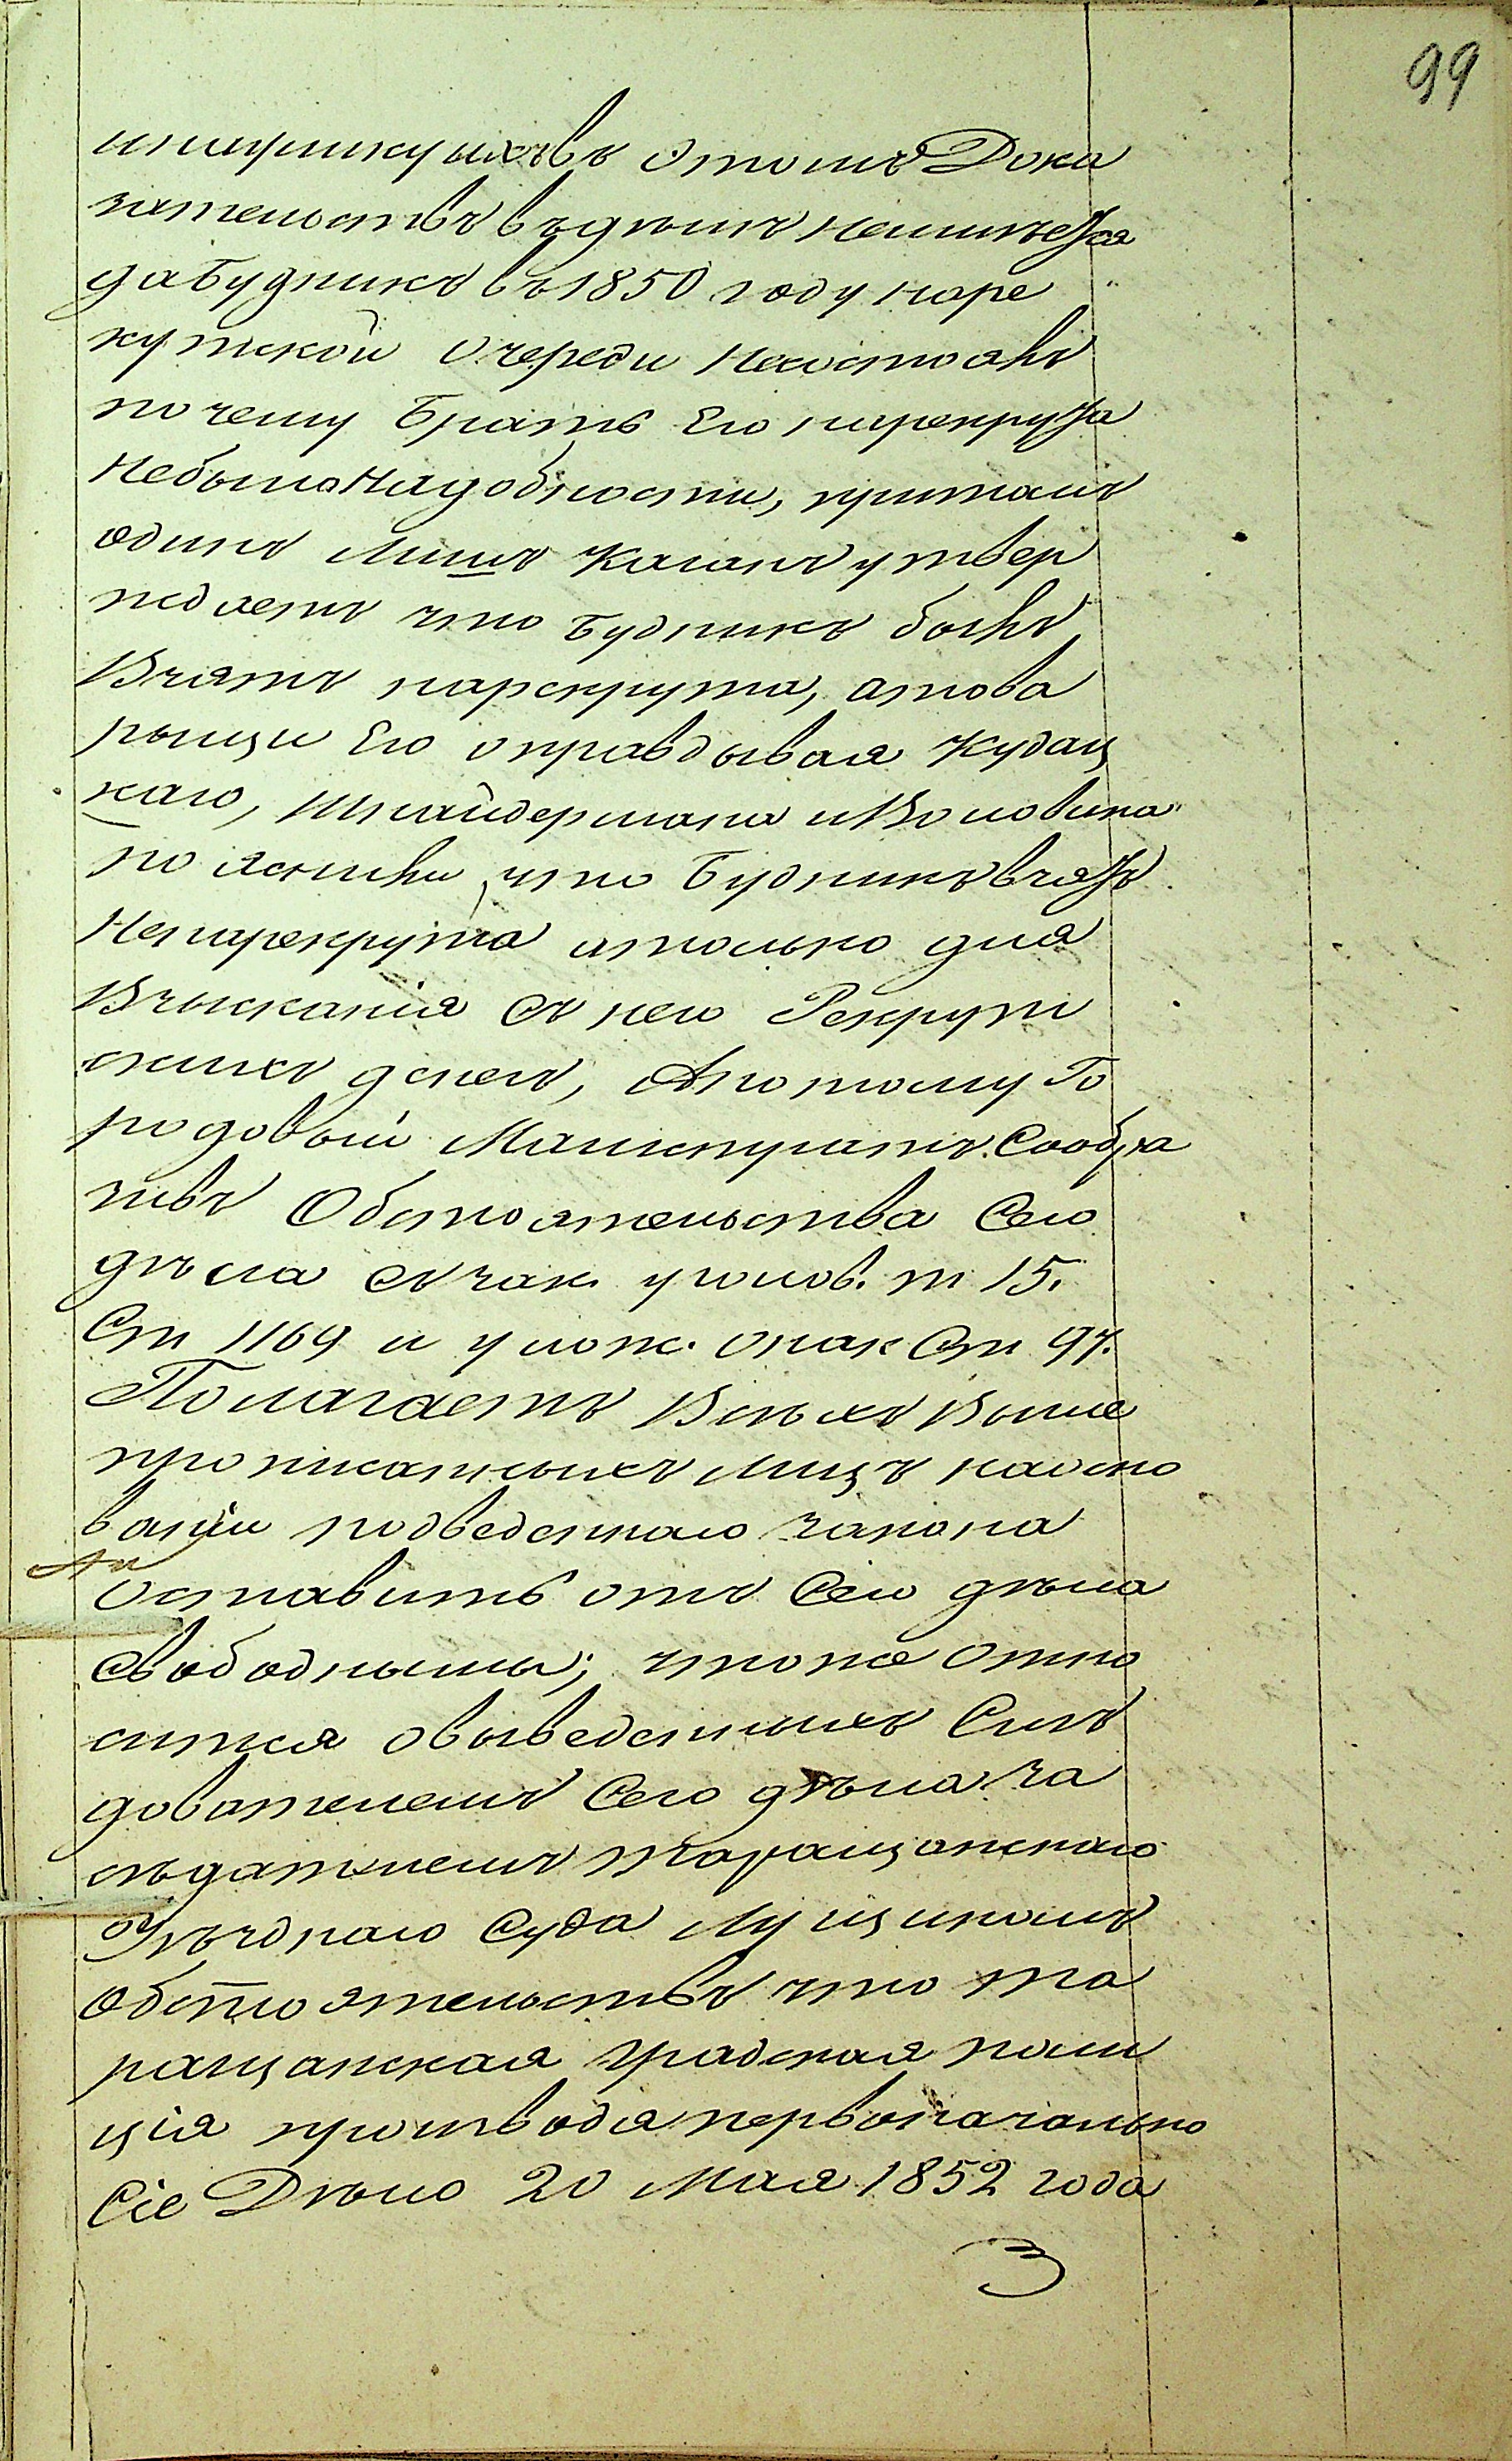 99
и никакихъ въ этомъ Дока
зательствъ въ дѣлѣ неимѣется
да Будникъ въ 1850 году наре
кутской очереди несостоялъ
почему Брать Его нарекрута
небыло Надобности, притомъ
одинъ Лишъ Каганъ утвер
ждаетъ что Будникъ былъ
Взятъ нарекрута, атова
рищи Его оправдывая Кудац
каго, Шнайдермана и Воловика
пояснили, что Будникъ взятъ
Ненарекрута атолько для
Взысканія Съ него Рекрут
скихъ денегъ, Апотому Го
родовый Магистратъ Сообра
зивъ Обстоятельства Сего
дѣла съ зак. уголов. т 15.
Ст 1169 и улож. онак Ст 97.
Полагаетъ Всѣхъ Выше
прописанныхъ Лицъ наосно
ваніи подведеннаго закона
Оставить отъ Сего дѣла
Свободными; чтоже Отно
сится овыведенныхъ Слѣ
дователемъ Сего дѣла За
сѣдателемъ Таращанскаго
Уѣзднаго Суда Лущикомъ
обстоятельствъ что Та
ращанская градская поли
ція производя первоначально
Сіе Дѣло 20 Мая 1852 года